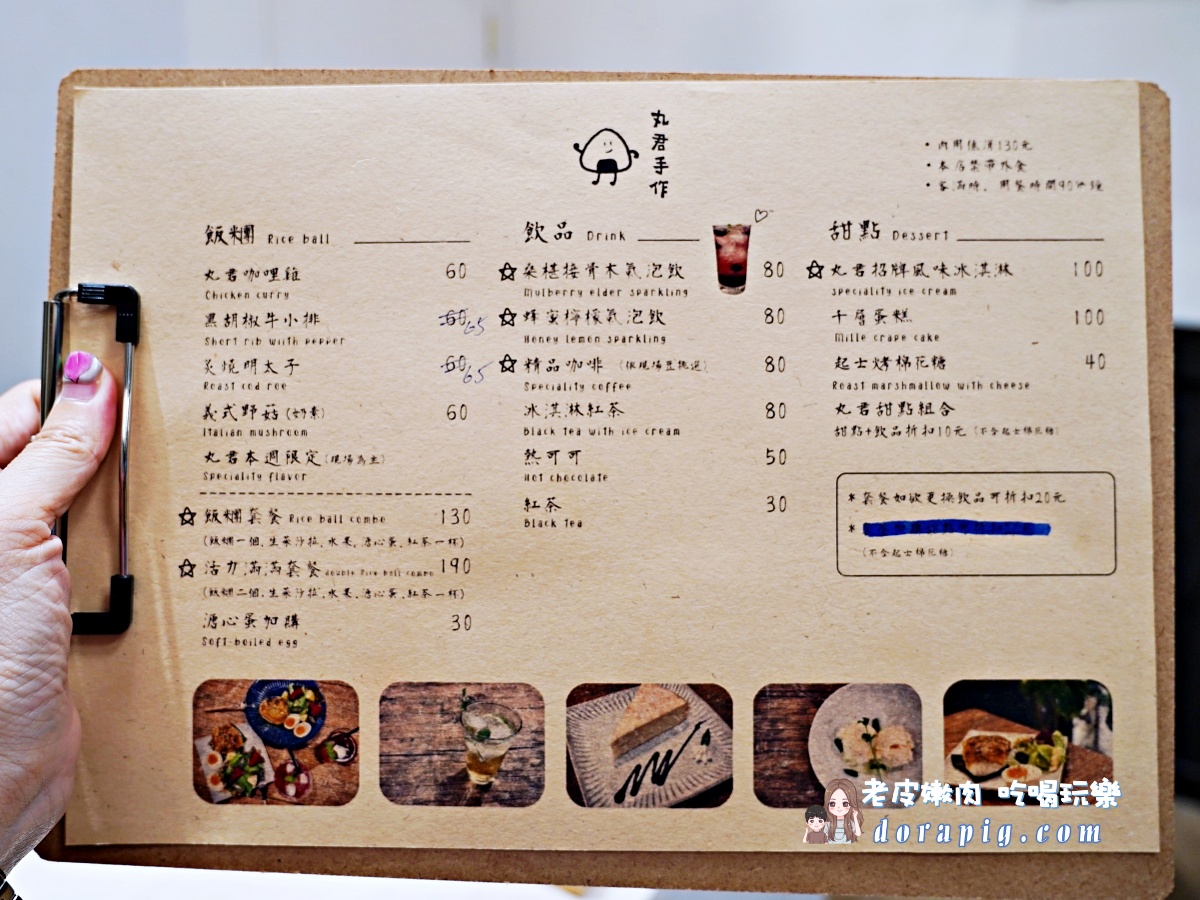 丸君手作
• 內用低消130元
• 本店禁帶外食
• 客滿時、用餐時間90分鐘
飯糰 Rice ball
丸君咖哩雞 60
Chicken curry
黑胡椒牛小排 60 65
Short rib wiith pepper
炙燒明太子 60 65
Roast cod roe
義式野菇(奶素) 60
Italian mushroom
丸君本週限定(現場為主)
Speciality flavor
飯糰套餐 Rice ball combo 130
(飯糰一個.生菜沙拉.水果.溏心蛋.紅茶一杯)
活力滿滿套餐 double Rice ball combo 190
(飯糰二個.生菜沙拉.水果.溏心蛋.紅茶一杯)
溏心蛋加購 30
Soft-boiled egg
飲品 Drink
桑椹接骨木氣泡飲 80
Mulberry elder sparkling
蜂蜜檸檬氣泡飲 80
Honey lemon sparkling
精品咖啡 (依現場豆挑選) 80
Speciality coffee
冰淇淋紅茶 80
Black tea with ice cream
熱可可 50
Hot chocolate
紅茶 30
Black tea
甜點 Dessert
丸君招牌風味冰淇淋 100
speciality ice cream
千層蛋糕 100
Mille crape cake
起士烤棉花糖 40
Roast marshmallow with cheese
丸君甜點組合
甜點+飲品折扣10元 (不含起士棉花糖)
*套餐如欲更換飲品可折扣20元
*
(不含起士棉花糖)
老皮嫩肉 吃喝玩樂
dorapig.com